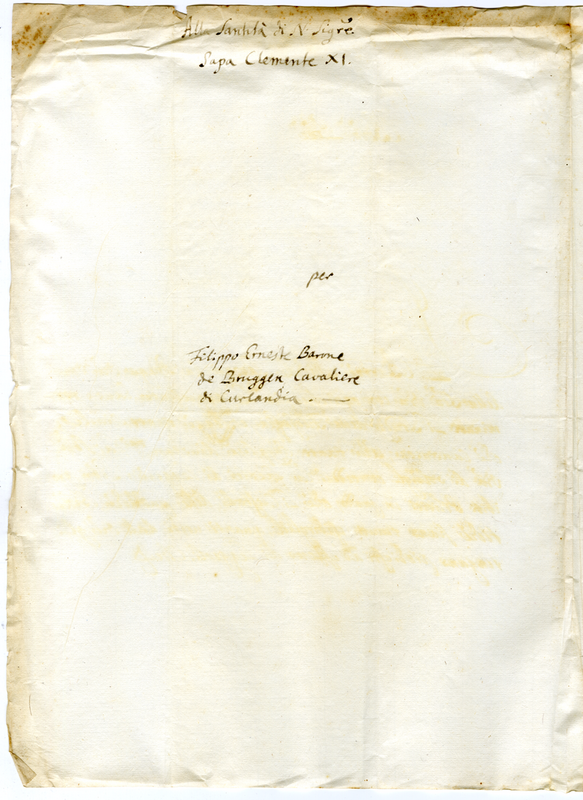 Alla Santità di N. Sigre.
Papa Clemente XI.
per
Filippo Erneste Barone
de Bruggen Cavaliere
di Curlandia.